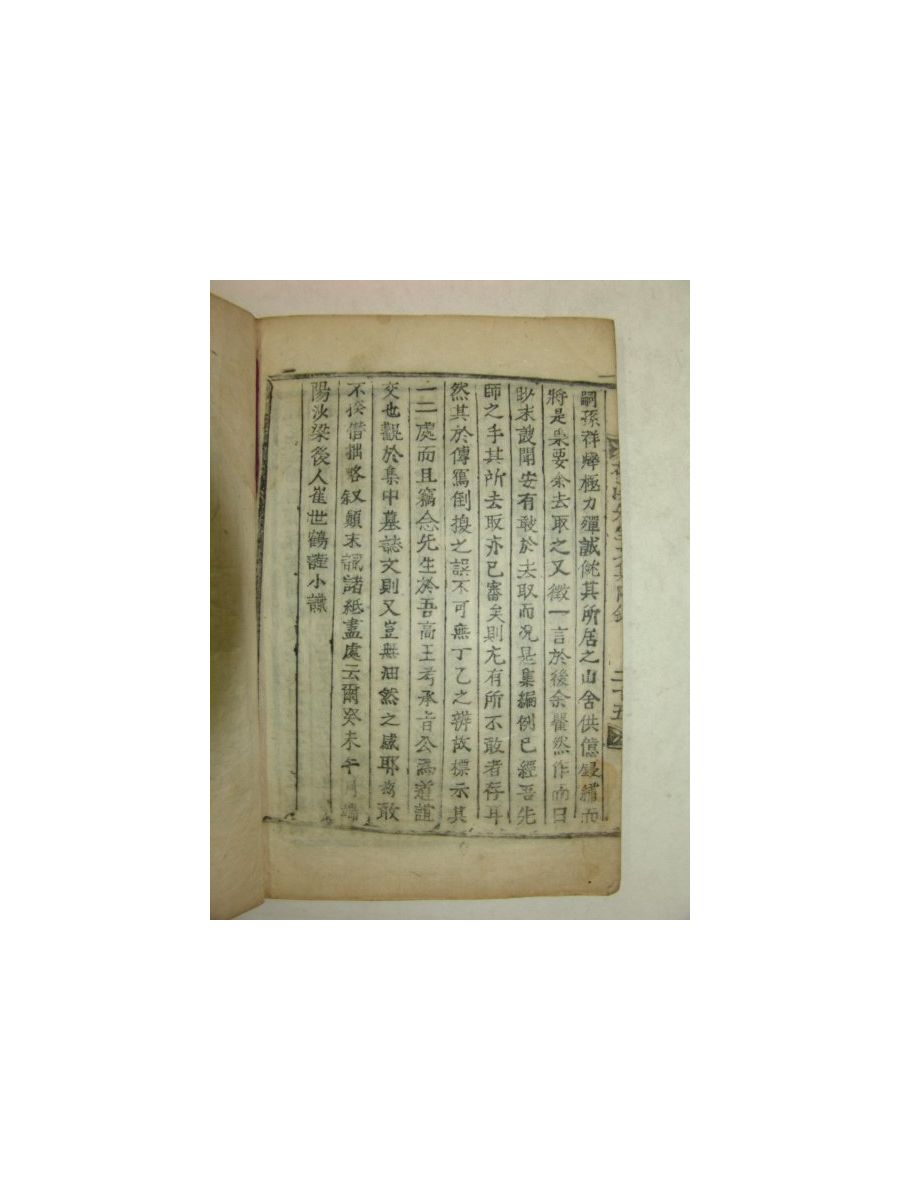 嗣孫祥燁極力殫誠就其所居之山舍供億鋟繡而
將是衆要余去取之又徵一言於後余瞿然作而曰
眇末謏聞安有敢於去取而况是集編例已經吾先
師之手其所去取亦已審矣則尤有所不敢者存耳
然其於傳寫倒換之誤不可無丁乙之辨故標示其
一二處而且竊念先生於吾高王考承旨公爲道誼
交也觀於集中墓誌文則又豈無油然之感耶玆敢
不揆僭拙略叙顚末識諸紙盡處云爾癸未午月端
陽汝梁後人崔世鶴謹小識
二十五